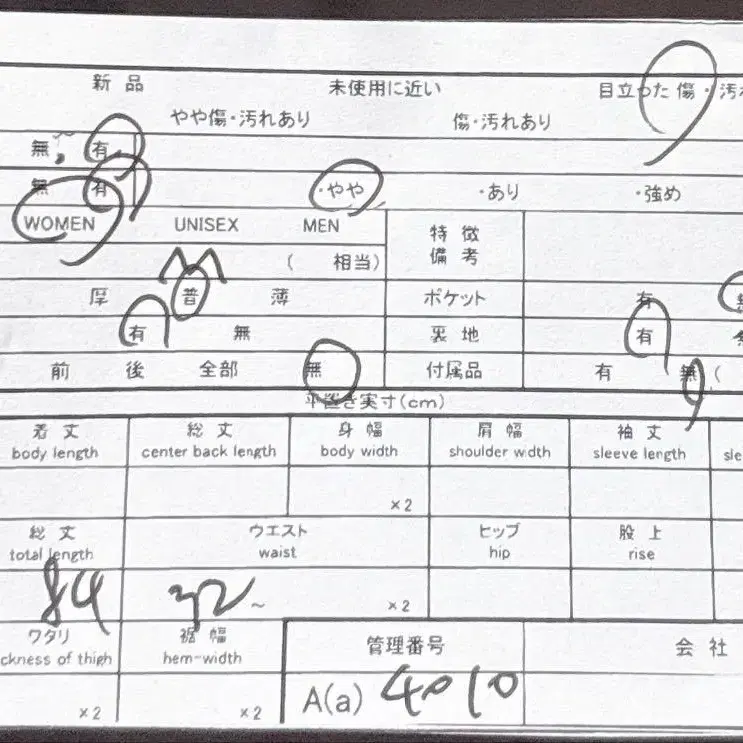 新品 未使用に近い 目立った傷・汚れ
やや傷・汚れあり 傷・汚れあり
無 有
無 有 ・やや ・あり ・強め
WOMEN UNISEX MEN 特徴
備考
M ( 相当)
厚 普 薄 ポケット 有 無
有 無 裏地 有
前 後 全部 無 付属品 有 無 (
平置き実寸(cm)
着丈 総丈 身幅 肩幅 袖丈
body length center back length body width shoulder width sleeve length sle
×2
総丈 ウエスト ヒップ 股上
total length waist hip rise
84 32~ ×2
ワタリ 裾幅 管理番号 会社
ckness of thigh hem-width
×2 ×2 A(a) 4010